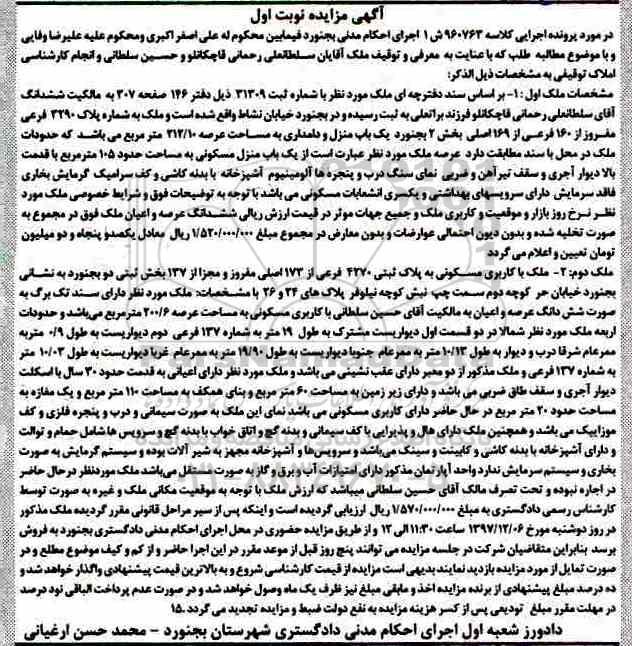 آگهی مزایده نوبت اول
در مورد پرونده اجرایی کلاسه ۹۶۰۷۶۳ ش ۱ اجرای احکام مدنی بجنورد فیمابین محکوم له علی اصغر اکبری ومحکوم علیه علیرضا وفایی
و با موضوع مطالبه طلب که با عنایت به معرفی و توقیف ملک آقایان سلطانعلی رحمانی قاچکانلو و حسین سلطانی و انجام کارشناسی
املاک توقیفی به مشخصات ذیل الذکر:
مشخصات ملک اول : ۱- بر اساس سند دفترچه ای ملک مورد نظر با شماره ثبت ۳۱۳۰۹ ذیل دفتر ۱۴۶ صفحه ۳۰۷ به مالکیت ششدانگ
آقای سلطانعلی رحمانی قاچکانلو فرزند براتعلی به ثبت رسیده و در بجنورد خیابان نشاط واقع شده است و ملک به شماره پلاک ۳۲۹۰ فرعی
مفروز از ۱۶۰ فرعی از ۱۶۹ اصلی بخش ۲ بجنورد یک باب منزل و دامداری به مساحت عرصه ۲۱۲/۱۰ متر مربع می باشد که حدودات
ملک در محل با سند مطابقت دارد عرصه ملک مورد نظر عبارت است از یک باب منزل مسکونی به مساحت حدود ۱۰۵ مترمربع با قدمت
بالا دیوار آجری و سقف تیرآهن و ضربی نمای سنگ درب و پنجره ها آلومینیوم آشپزخانه با بدنه کاشی و کف سرامیک گرمایش بخاری
فاقد سرمایش دارای سرویسهای بهداشتی و یکسری انشعابات مسکونی می باشد با توجه به توضیحات فوق و شرایط خصوصی ملک مورد
نظر نرخ روز بازار و موقعیت و کاربری ملک و جمیع جهات موثر در قیمت ارزش ریالی ششدانگ عرصه و اعیان ملک فوق در مجموع به
صورت تخلیه شده و بدون دیون احتمالی عوارضات و بدون معارض در مجموع مبلغ ۱/۵۲۰/۰۰۰/۰۰۰ ریال معادل یکصدو پنجاه و دو میلیون
تومان تعیین و اعلام می گردد
ملک دوم: ۲- ملک با کاربری مسکونی به پلاک ثبتی ۴۲۷۰ فرعی از ۱۷۳ اصلی مفروز و مجزا از ۱۳۷ بخش ثبتی دو بجنورد به نشانی
بجنورد خیابان حر کوچه دوم سمت چپ نبش کوچه نیلوفر پلاک های ۲۴ و ۲۶ با مشخصات: ملک مورد نظر دارای سند تک برگ به
صورت شش دانگ عرصه و اعیان به مالکیت آقای حسین سلطانی با کاربری مسکونی به مساحت عرصه ۲۰۰/۶ مترمربع می باشد و حدودات
اربعه ملک مورد نظر شمالا در دو قسمت اول دیواریست مشترک به طول ۱۹ متر به شماره ۱۳۷ فرعی دوم دیواریست به طول ۰/۹ متر به
ممرعام شرقا درب و دیوار به طول ۱۰/۱۳ متر به ممرعام جنوبا دیواریست به طول ۱۹/۹۰ متر به ممرعام غربا دیواریست به طول ۱۰/۰۳ متر
به شماره ۱۳۷ فرعی و ملک مذکور از دو معبر دارای عقب نشینی می باشد و ملک مورد نظر دارای اعیانی به قدمت حدود ۳۰ سال با اسکلت
دیوار آجری و سقف طاق ضربی می باشد و دارای زیر زمین به مساحت ۶۰ متر مربع و بنای همکف به مساحت ۱۱۰ متر مربع و یک مغازه به
مساحت حدود ۲۰ متر مربع در حال حاضر دارای کاربری مسکونی می باشد نمای این ملک به صورت سیمانی و درب و پنجره فلزی و کف
موزاییک می باشد و همچنین ملک دارای هال و پذیرایی با کف سیمانی و بدنه گچ و اتاق خواب با بدنه گچ و سرویس ها شامل حمام و توالت
و دارای آشپزخانه با بدنه کاشی و کابینت و سینک می‌باشد و سرویس‌ها و آشپزخانه مجهز به شیر آلات بوده و سیستم گرمایش به صورت
بخاری و سیستم سرمایش ندارد واحد آپارتمان مذکور دارای امتیازات آب و برق و گاز به صورت مستقل می‌باشد ملک موردنظر در حال حاضر
در اجاره نبوده و تحت تصرف مالک آقای حسین سلطانی میباشد که ارزش ملک با توجه به موقعیت مکانی ملک و غیره به صورت توسط
کارشناس رسمی دادگستری به مبلغ ۱/۵۷۰/۰۰۰/۰۰۰ ریال ارزیابی گردیده است و اینکه پس از سیر مراحل قانونی مقرر گردیده ملک مذکور
در روز دوشنبه مورخ ۱۳۹۷/۱۲/۰۶ ساعت ۱۱:۳۰ الی ۱۲ و از طریق مزایده حضوری در محل اجرای احکام مدنی دادگستری بجنورد به فروش
برسد بنابراین متقاضیان شرکت در جلسه مزایده می توانند پنج روز قبل از موعد مقرر در این اجرا حاضر و از کم و کیف موضوع مطلع و در
صورت تمایل از مورد مزایده بازدید نمایند بدیهی است مزایده از قیمت کارشناسی شروع و به بالاترین قیمت پیشنهادی واگذار خواهد شد و
ده درصد مبلغ پیشنهادی از برنده مزایده اخذ و مابقی مبلغ نیز ظرف یک ماه وصول خواهد شد و در صورت عدم پرداخت الباقی نود درصد
در مهلت مقرر مبلغ تودیعی پس از کسر هزینه مزایده به نفع دولت ضبط و مزایده تجدید می گردد .۱۵
دادورز شعبه اول اجرای احکام مدنی دادگستری شهرستان بجنورد - محمد حسن ارغیانی